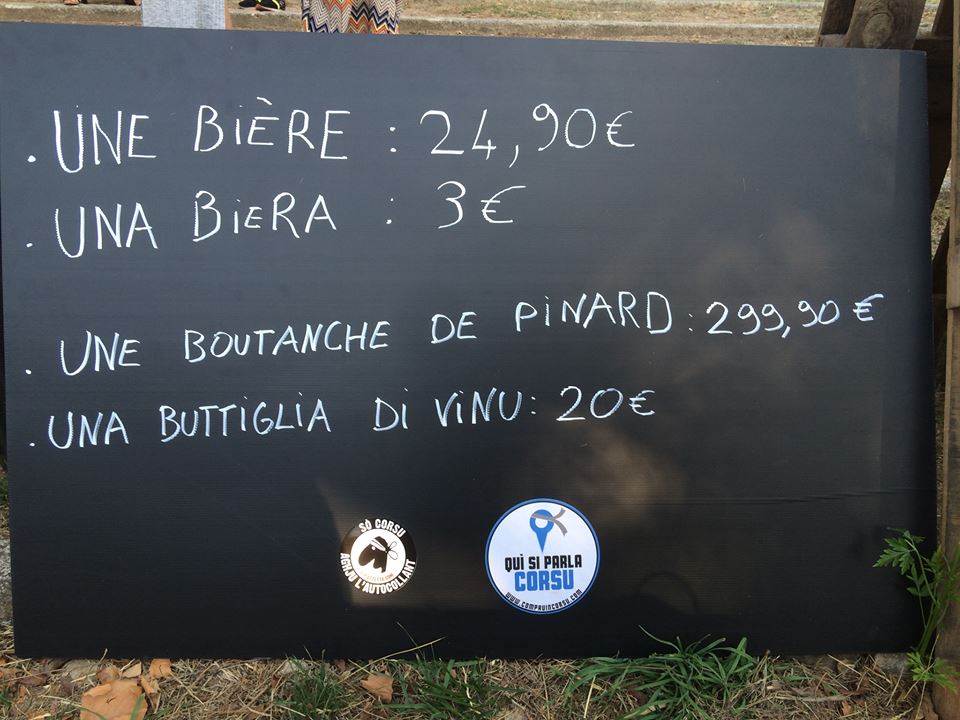 . UNE BIÈRE : 24,90€
. UNA BIERA : 3€
. UNE BOUTANCHE DE PINARD : 299,90€
. UNA BUTTIGLIA DI VINU : 20€
SÒ CORSU
AGHJU L'AUTOCOLLANT
QUÌ SI PARLA
CORSU
www.compruincorsu.com